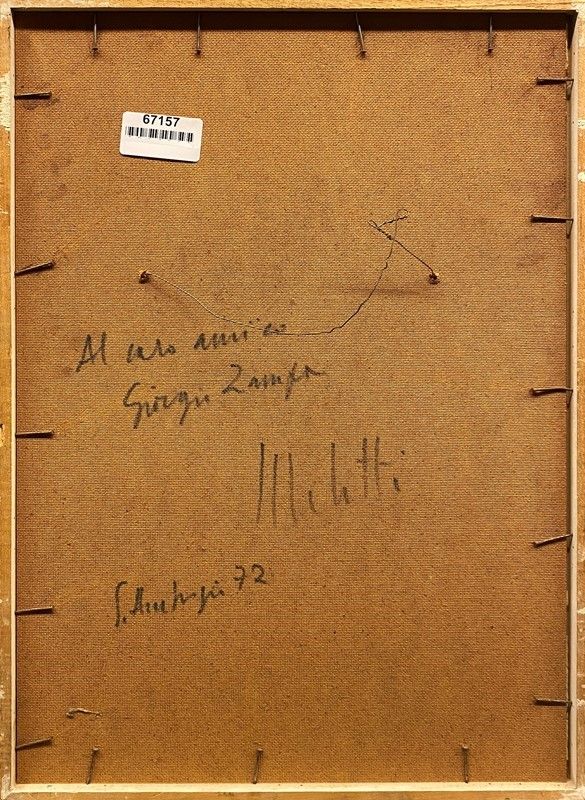 67157
Al caro amico
Giorgio Zampa
Miletti
S. Ambrogio 72